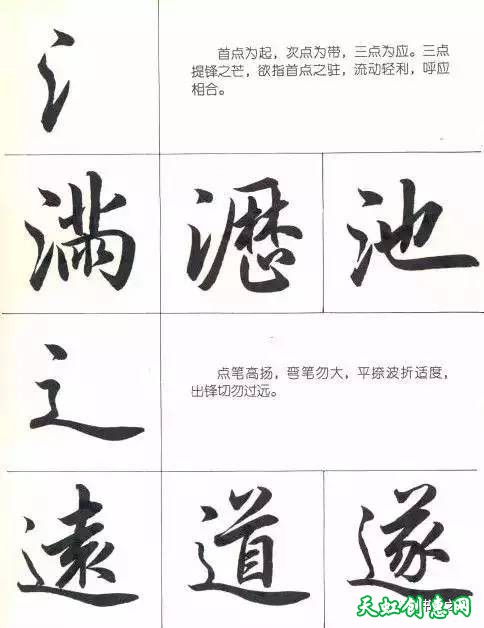 氵
首点为起，次点为带，三点为应。三点
提锋之芒，欲指首点之驻，流动轻利，呼应
相合。
滿 瀝 池
辶
点笔高扬，弯笔勿大，平捺波折适度，
出锋切勿过远。
遠 道 遂
天虹创意网